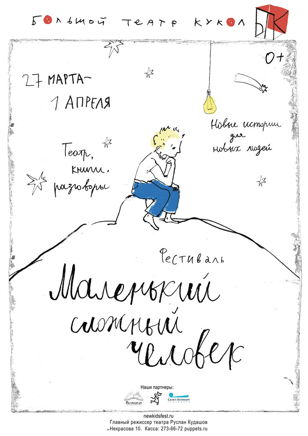 БОЛЬШОЙ ТЕАТР КУКОЛ
БТК
0+
27 МАРТА–
1 АПРЕЛЯ
Новые истории
для
новых людей
Театр,
книги,
разговоры
Фестиваль
Маленький
сложный
человек
Наши партнеры:
newkidsfest.ru
Главный режиссер театра Руслан Кудашов
Некрасова 10. Касса: 273-66-72 puppets.ru